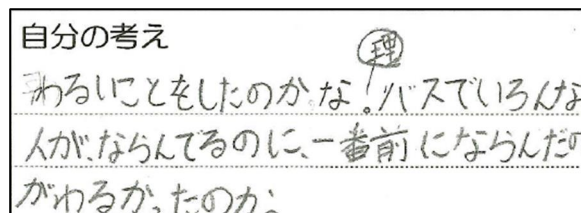 自分の考え
理
わるいことをしたのかな!バスでいろんな
人が、ならんでるのに、一番前にならんだの
がわるかったのか。